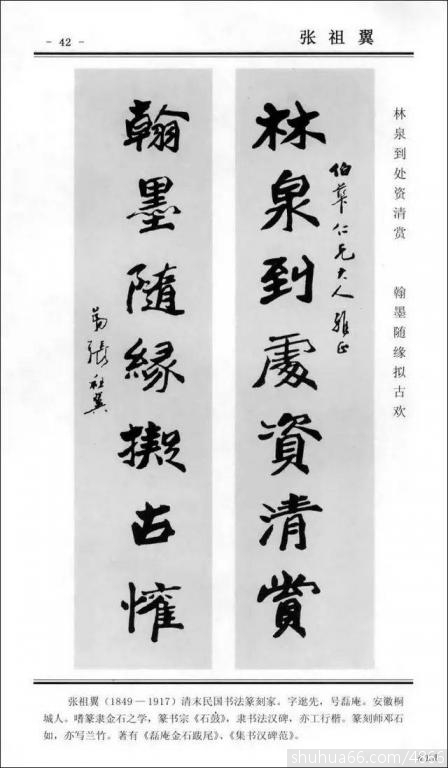 - 42 -
张祖翼
林泉到处资清赏
翰墨随缘拟古欢
林泉到處資清賞
伯華仁兄大人雅正
翰墨隨緣擬古懽
弟張祖翼
张祖翼(1849—1917)清末民国书法篆刻家。字逖先，号磊庵。安徽桐
城人。嗜篆隶金石之学，篆书宗《石鼓》，隶书法汉碑，亦工行楷。篆刻师邓石
如，亦写兰竹。著有《磊庵金石跋尾》、《集书汉碑范》。
shuhua66.com